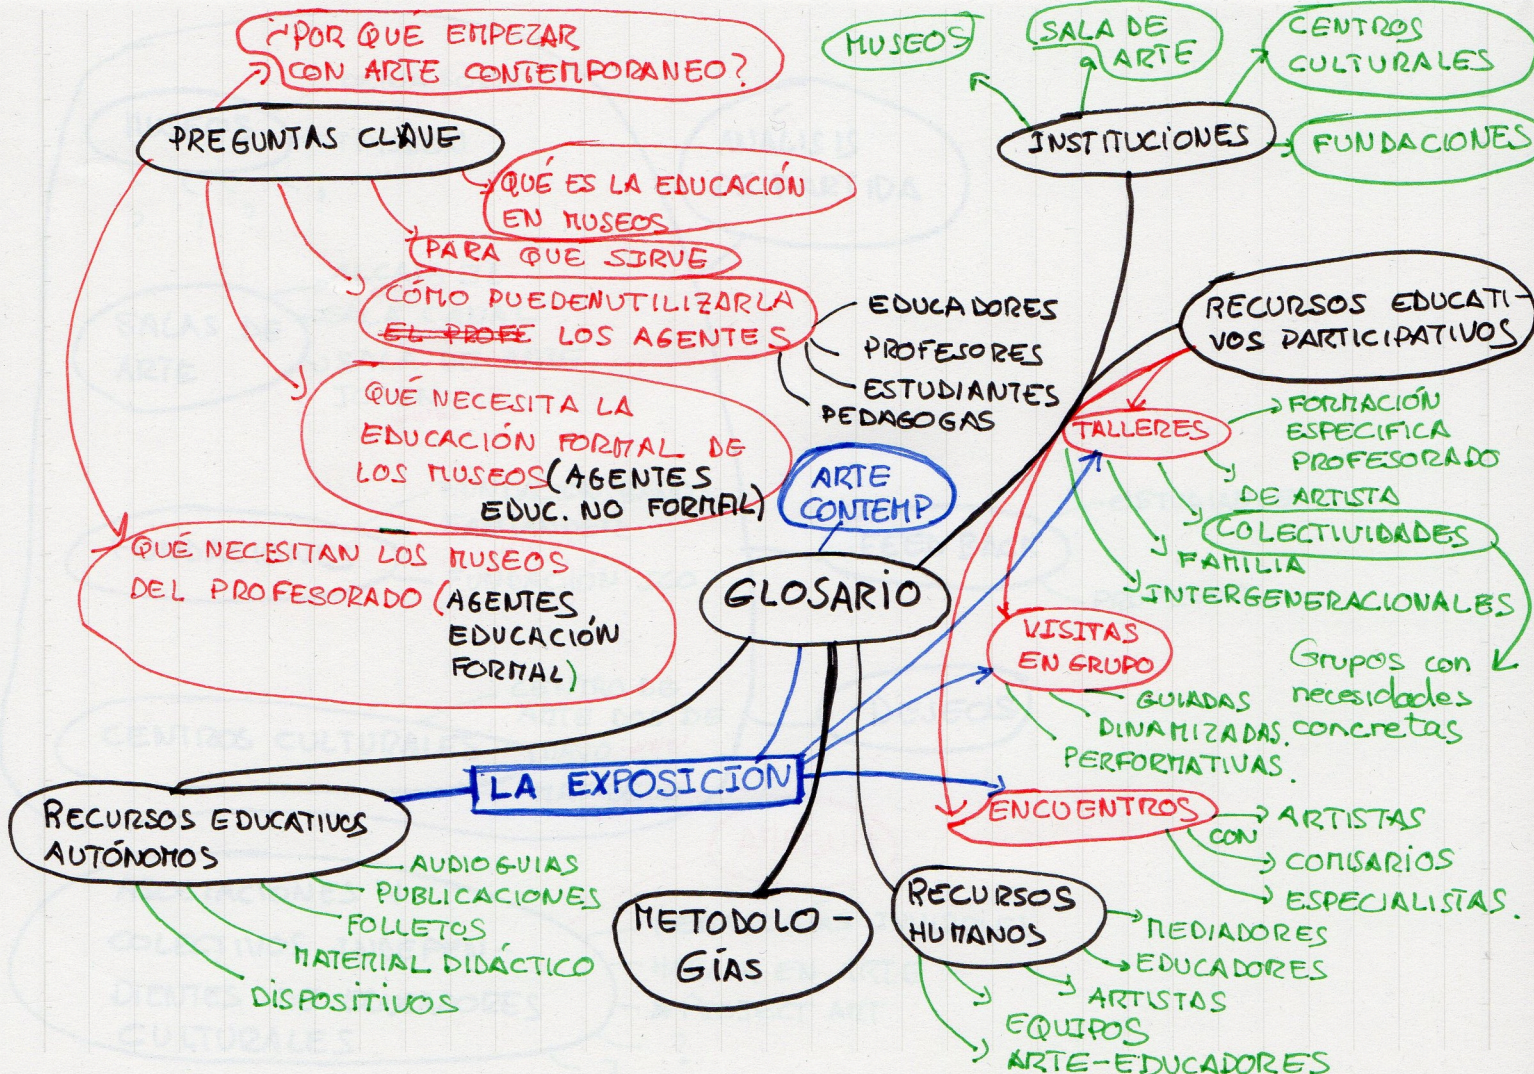 ¿POR QUÉ EMPEZAR
CON ARTE CONTEMPORANEO?
PREGUNTAS CLAVE
QUÉ ES LA EDUCACIÓN
EN MUSEOS
PARA QUE SIRVE
CÓMO PUEDEN UTILIZARLA
EL PROFE LOS AGENTES
EDUCADORES
PROFESORES
ESTUDIANTES
PEDAGOGAS
QUÉ NECESITA LA
EDUCACIÓN FORMAL DE
LOS MUSEOS (AGENTES
EDUC. NO FORMAL)
QUÉ NECESITAN LOS MUSEOS
DEL PROFESORADO (AGENTES
EDUCACIÓN
FORMAL)
MUSEOS
SALA DE
ARTE
CENTROS
CULTURALES
INSTITUCIONES
FUNDACIONES
RECURSOS EDUCATI-
VOS PARTICIPATIVOS
TALLERES
FORMACIÓN
ESPECIFICA
PROFESORADO
DE ARTISTA
COLECTIVIDADES
FAMILIA
INTERGENERACIONALES
Grupos con
necesidades
concretas
ARTE
CONTEMP
GLOSARIO
VISITAS
EN GRUPO
GUIADAS
DINAMIZADAS.
PERFORMATIVAS.
LA EXPOSICIÓN
ENCUENTROS
CON
ARTISTAS
COMISARIOS
ESPECIALISTAS.
RECURSOS EDUCATIVOS
AUTÓNOMOS
AUDIOGUIAS
PUBLICACIONES
FOLLETOS
MATERIAL DIDÁCTICO
DISPOSITIVOS
METODOLO-
GÍAS
RECURSOS
HUMANOS
MEDIADORES
EDUCADORES
ARTISTAS
EQUIPOS
ARTE-EDUCADORES